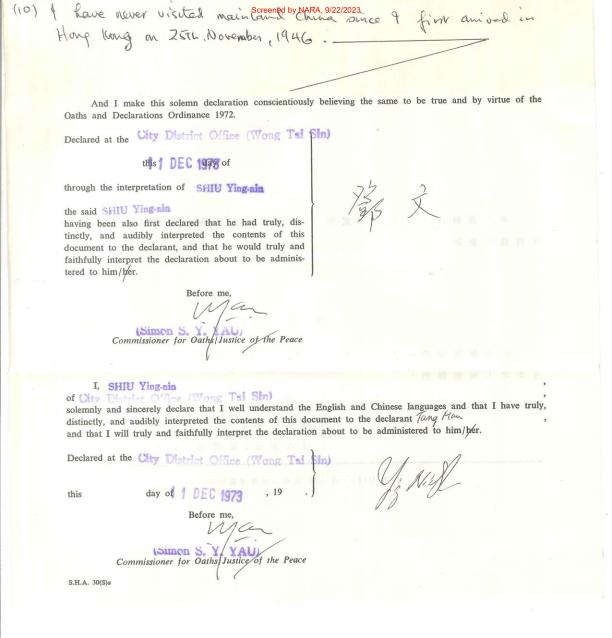 Screened by NARA, 9/22/2023
(10) I have never visited mainland China since I first arrived in
Hong Kong on 25th. November, 1946.
And I make this solemn declaration conscientiously believing the same to be true and by virtue of the
Oaths and Declarations Ordinance 1972.
Declared at the City District Office (Wong Tai Sin)
this 11 DEC 1973 of
through the interpretation of SHIU Ying-nin
the said SHIU Ying-nin
having been also first declared that he had truly, dis-
tinctly, and audibly interpreted the contents of this
document to the declarant, and that he would truly and
faithfully interpret the declaration about to be adminis-
tered to him/her.
鄧 文
Before me,
(Simon S. Y. YAU)
Commissioner for Oaths/Justice of the Peace
I, SHIU Ying-nin ,
of City District Office (Wong Tai Sin) ,
solemnly and sincerely declare that I well understand the English and Chinese languages and that I have truly,
distinctly, and audibly interpreted the contents of this document to the declarant Tang Man ,
and that I will truly and faithfully interpret the declaration about to be administered to him/her.
Declared at the City District Office (Wong Tai Sin)
this day of 11 DEC 1973 , 19 .
Before me,
(Simon S. Y. YAU)
Commissioner for Oaths/Justice of the Peace
S.H.A. 30(S)a